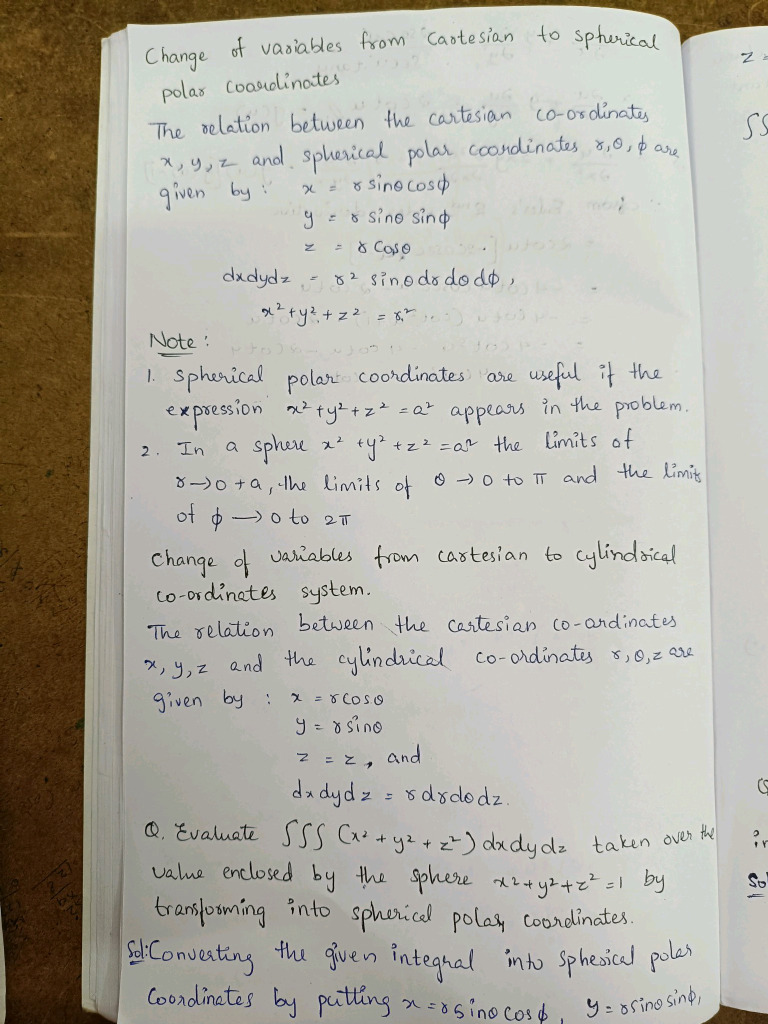 Change of variables from Cartesian to spherical
polar coordinates
The relation between the cartesian co-ordinates
x, y, z and spherical polar coordinates r, θ, φ are
given by : x = r sinθ cosφ
y = r sinθ sinφ
z = r cosθ
dxdydz = r² sinθ dr dθ dφ,
x² + y² + z² = r²
Note :
1. Spherical polar coordinates are useful if the
expression x² + y² + z² = a² appears in the problem.
2. In a sphere x² + y² + z² = a² the limits of
r → 0 to a, the limits of θ → 0 to π and the limits
of φ → 0 to 2π
Change of variables from cartesian to cylindrical
co-ordinates system.
The relation between the cartesian co-ordinates
x, y, z and the cylindrical co-ordinates r, θ, z are
given by : x = r cosθ
y = r sinθ
z = z, and
dxdydz = r dr dθ dz.
Q. Evaluate ∫∫∫ (x² + y² + z²) dxdydz taken over the
value enclosed by the sphere x² + y² + z² = 1 by
transforming into spherical polar coordinates.
Sol: Converting the given integral into spherical polar
coordinates by putting x = r sinθ cosφ, y = r sinθ sinφ,
z =
∫∫
in
Sol